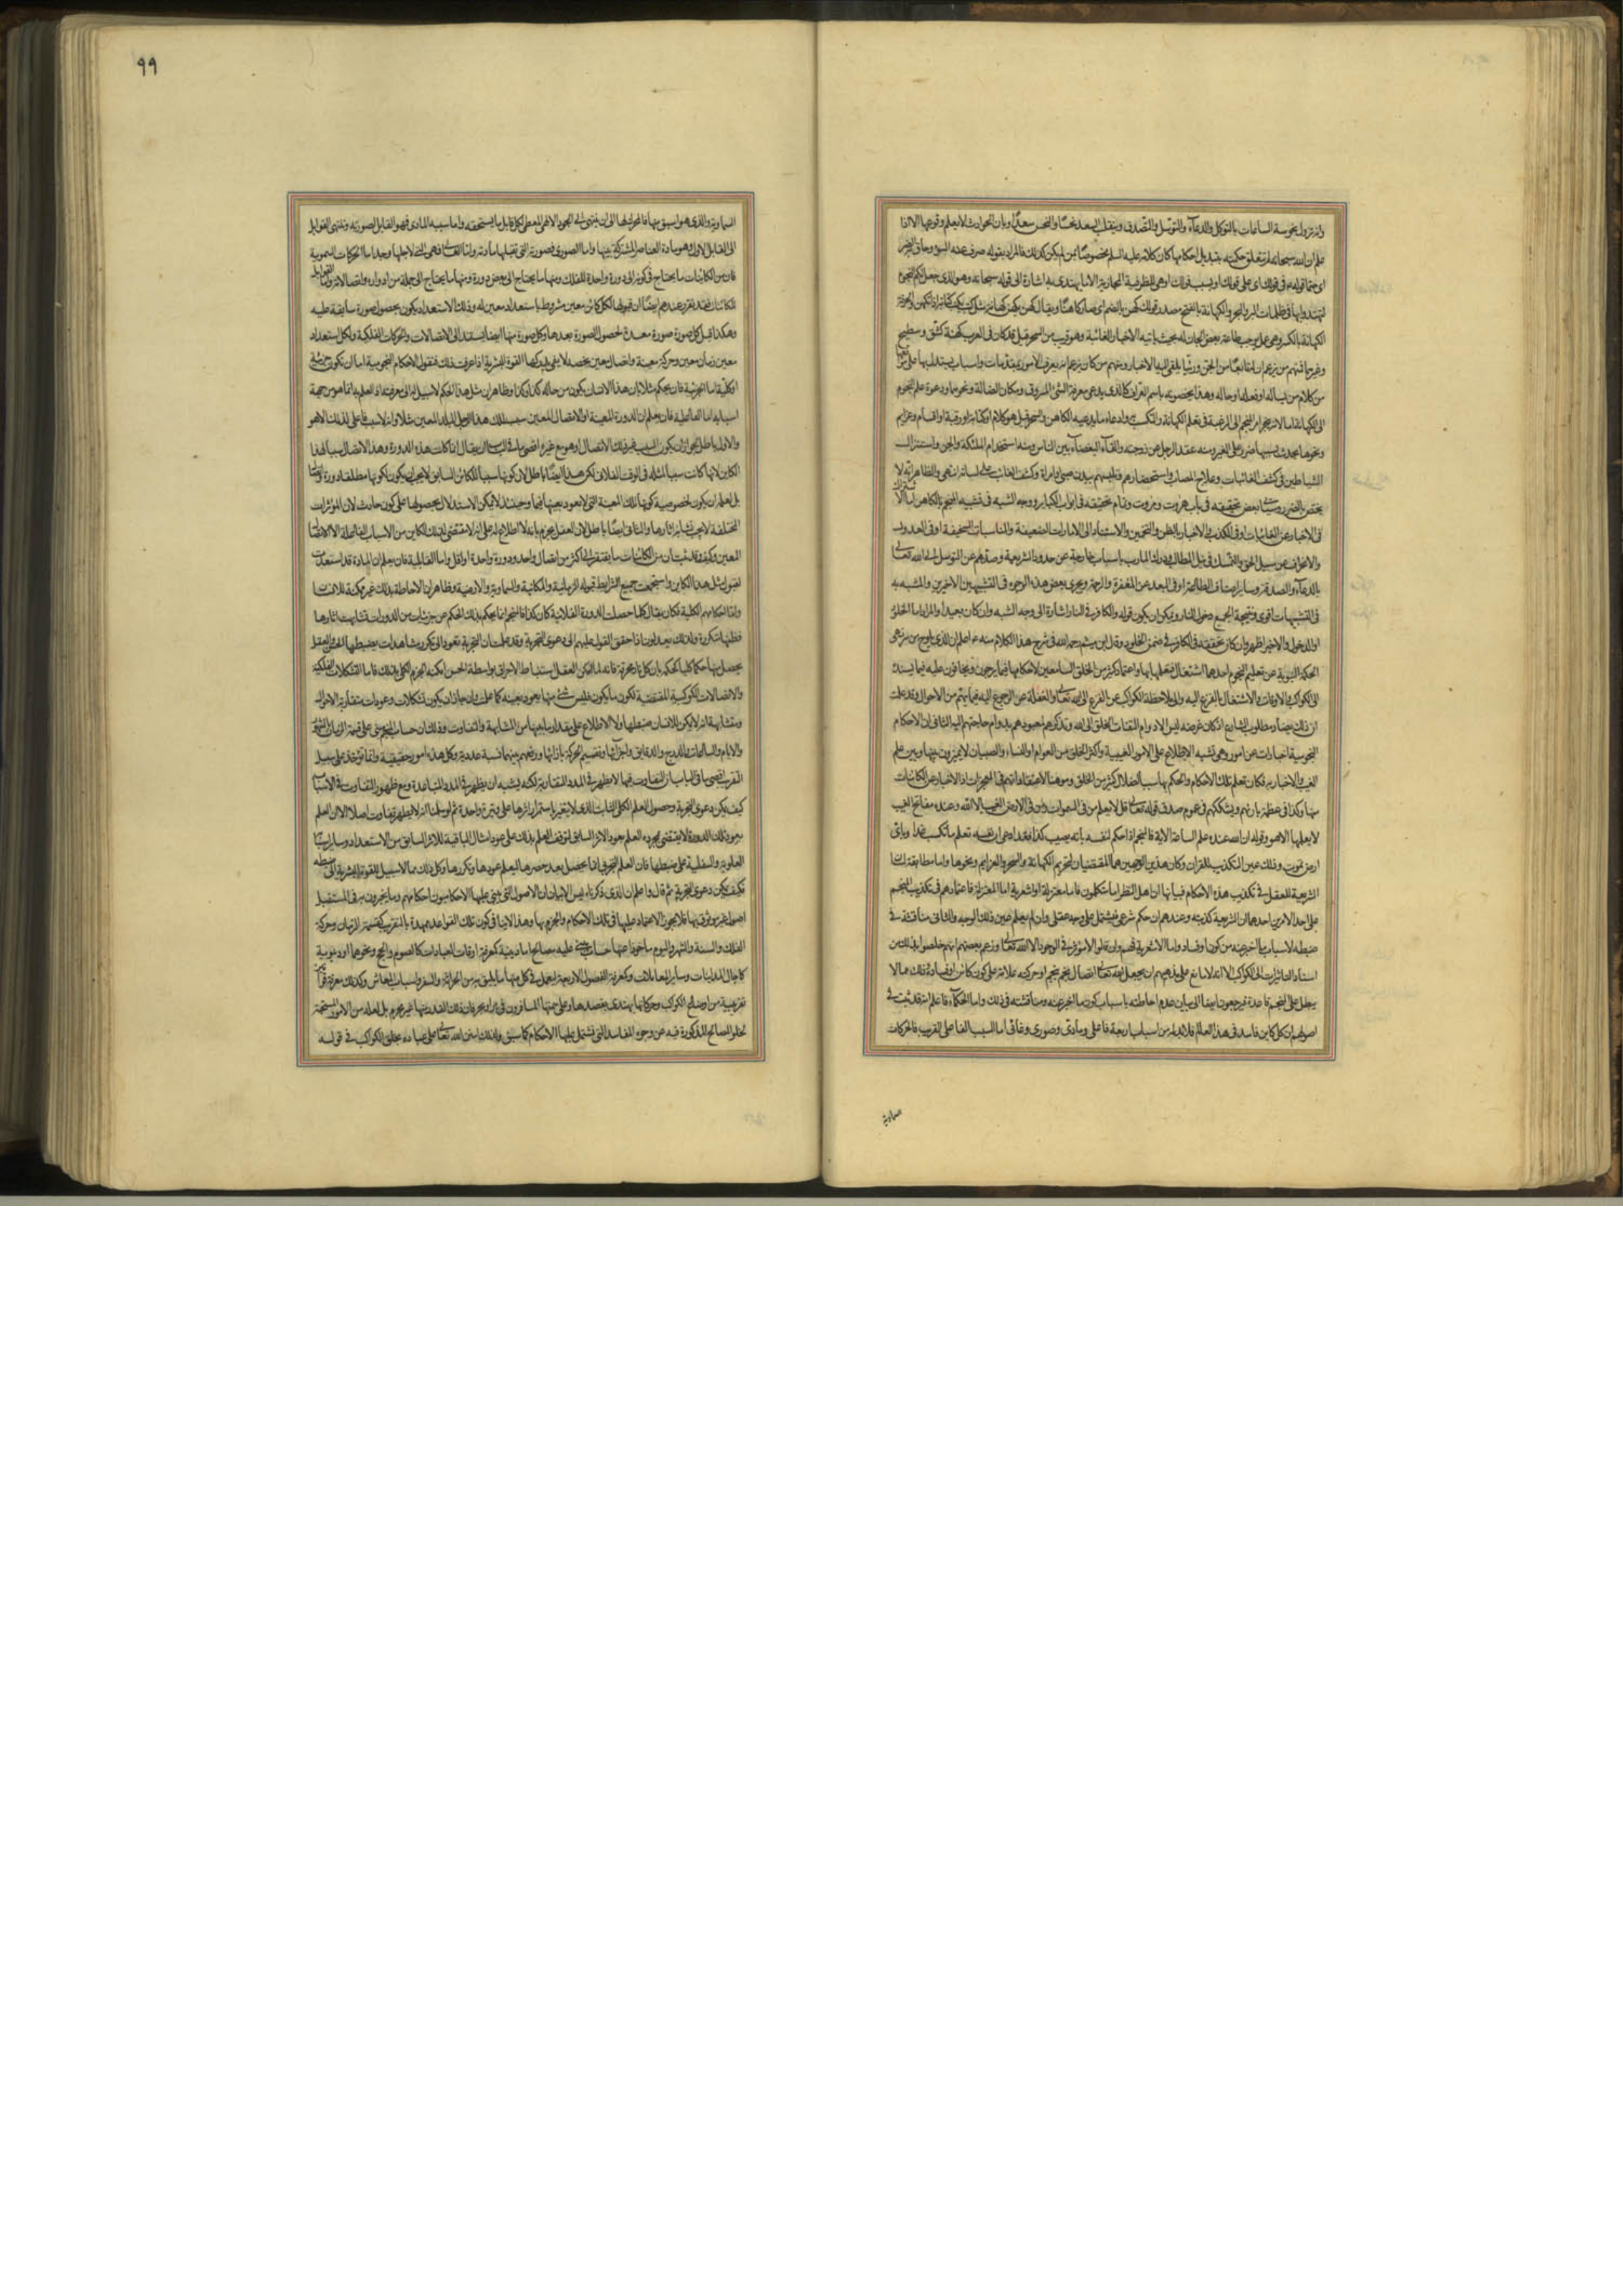 وانه تزول نحوسة الساعات بالتوكل والدعاء والتوسل والتصدق وينقلب السعد نحسا والنحس سعدا وبان الحوادث لا يعلم وقوعها الا اذا
علم ان الله سبحانه لم تتعلق حكمته بتبديل احكامها كان كلامه عليه السلم مخصوصا بمن لم يكن كذلك فالمراد بقوله صرف عنه السوء وحاق به الضر
اي حتما قوله في قولك اي على قولك او بسبب قولك او هي للظرفية المجازية الا ما يهتدى به اشارة الى قوله سبحانه وهو الذي جعل لكم النجوم
لتهتدوا بها في ظلمات البر والبحر والكهانة بالفتح مصدر قولك كهن بالضم اي صار كاهنا ويقال كهن يكهن كهانة مثل كتب يكتب كتابة اذا تكهن والحرفة
الكهانة بالكسر وهي عمل يوجب طاعة بعض الجان له بحيث ياتيه بالاخبار الغائبة وهو قريب من السحر قيل قد كان في العرب كهنة كشق وسطيح
وغيرهما فمنهم من يزعم ان له تابعا من الجن ورئيا يلقي اليه الاخبار ومنهم من كان يزعم انه يعرف الامور بمقدمات واسباب يستدل بها على مواقعها
من كلام من يساله او فعله او حاله وهذا يخصونه باسم العراف كالذي يدعي معرفة الشئ المسروق ومكان الضالة ونحوهما ودعوة علم النجوم
الى الكهانة اما لانه ينجر امر المنجم الى الرغبة في تعلم الكهانة والتكسب به او ادعاء ما يدعيه الكاهن والسحر قيل هو كلام او كتابة او رقية او اقسام وعزايم
ونحوها يحدث بسببها ضرر على الغير ومنه عقد الرجل عن زوجته والقاء البغضاء بين الناس ومنه استخدام الملئكة والجن واستنزال
الشياطين في كشف الغائبات وعلاج المصاب واستحضارهم وتلبسهم ببدن صبي او امراة وكشف الغائب على لسانه انتهى والظاهر انه لا
يختص بالضرر وسياتي بعض تحقيقه في باب هاروت وماروت وتمام تحقيقه في ابواب الكبائر ووجه الشبه في تشبيه المنجم بالكاهن اما الاشتراك
في الاخبار عن الغائبات او في الكذب والاخبار بالظن والتخمين والاستناد الى الامارات الضعيفة والمناسبات السخيفة او في العدول
والانحراف عن سبيل الحق والتمسك في نيل المطالب ودرك المارب باسباب خارجة عن حدود الشريعة وصدهم عن التوسل الى الله تعالى
بالدعاء والصدقة وسائر اصناف الطاعة او في البعد عن المغفرة والرحمة ويجري بعض هذه الوجوه في التشبيهين الاخيرين والمشبه به
في التشبيهات اقوى ونتيجة الجميع دخول النار ويمكن ان يكون قوله والكافر في النار اشارة الى وجه الشبه وان كان بعيدا والمراد اما الخلود
او الدخول والاخير اظهر وان كان تحققه في الكافر في ضمن الخلود وقال ابن ميثم رحمه الله في شرح هذا الكلام منه ع اعلم ان الذي يلوح من سر نهي
الحكمة النبوية عن تعلم النجوم امران احدهما اشتغال متعلمها بها واعتماد كثير من الخلق السامعين لاحكامها فيما يرجون ويخافون عليه فيما يسنده
الى الكواكب والاوقات والاشتغال بالفزع اليه والى ملاحظة الكواكب عن الفزع الى الله تعالى والغفلة عن الرجوع اليه فيما يهم من الاحوال وقد علمت
ان ذلك يضاد مطلوب الشارع اذ كان غرضه ليس الا دوام التفات الخلق الى الله وتذكرهم لمعبودهم بدوام حاجتهم اليه الثاني ان الاحكام
النجومية اخبارات عن امور وهي تشبه الاطلاع على الامور الغيبية واكثر الخلق من العوام والنساء والصبيان لا يميزون بينها وبين علم
الغيب والاخبار به فكان تعلم تلك الاحكام والحكم بها سببا لضلال كثير من الخلق وموهنا لاعتقاداتهم في المعجزات اذ الاخبار عن الكائنات
منها وكذا في عظمة بارئهم ويشككهم في عموم صدق قوله تعالى قل لا يعلم من في السموات ومن في الارض الغيب الا الله وعنده مفاتح الغيب
لا يعلمها الا هو وقوله ان الله عنده علم الساعة الاية فالمنجم اذا حكم لنفسه بانه يصيب كذا فقد ادعى ان نفسه تعلم ما تكسب غدا وباي
ارض تموت وذلك عين التكذيب للقران وكان هذين الوجهين هما المقتضيان لتحريم الكهانة والسحر والعزايم ونحوها واما مطابقة لسان
الشريعة للعقل في تكذيب هذه الاحكام فبيانها ان اهل النظر اما متكلمون فاما معتزلة او اشعرية اما المعتزلة فاعتمادهم في تكذيب المنجم
على احد الامرين احدهما ان الشريعة كذبته وعندهم ان كل حكم شرعي فيشتمل على وجه عقلي وان لم يعلم عين ذلك الوجه والثاني مناقشة في
ضبطه لاسباب ما اخبر عنه من كون او فساد واما الاشعرية فهم وان قالوا لا مؤثر في الوجود الا الله تعالى وزعم بعضهم انهم خلصوا بذلك من
اسناد التاثيرات الى الكواكب الا انه لا مانع على مذهبهم ان يجعل الله تعالى اتصال نجم بنجم او حركته علامة على كون كائن او فساده وذلك مما لا
يبطل على المنجم قاعدة فيرجعون ايضا الى بيان عدم احاطته باسباب كون ما اخبر عنه ومناقشته في ذلك واما الحكماء فاعلم انه قد ثبت في
اصولهم ان كل كاين فاسد في هذا العالم فلا بد له من اسباب اربعة فاعلي ومادي وصوري وغائي اما السبب الفاعلي القريب فالحركات
سماوية
٩٩
السماوية والذي هو اسبق منها فالمحرك لها الى ان ينتهي الى الجود الالهي المعطي لكل قابل ما يستحقه واما سببه المادي فهو القابل لصورته وتنتهي القوابل
الى القابل الاول وهو مادة العناصر المشتركة بينها واما الصوري فصورته التي تقبلها مادته واما الغائي فهي التي لاجلها وجد اما الحركات السموية
فان من الكائنات ما يحتاج في كونه الى دورة واحدة للفلك ومنها ما يحتاج الى بعض دورة ومنها ما يحتاج الى جملة من ادواره واتصالاته واما القوابل
للكائنات فقد تقرر عندهم ايضا ان قبولها لكل كائن معين مشروط باستعداد معين له وذلك الاستعداد يكون بحصول صورة سابقة عليه
وهكذا قبل كل صورة صورة معدة لحصول الصورة بعدها وكل صورة منها ايضا تستند الى الاتصالات والحركات الفلكية ولكل استعداد
معين زمان معين وحركة معينة واتصال معين يخصه لا يفي بدركها القوة البشرية اذا عرفت ذلك فنقول الاحكام النجومية اما ان تكون جزئية
او كلية اما الجزئية فان يحكم مثلا بان هذا الانسان يكون من حاله كذا وكذا وظاهر ان مثل هذا الحكم لا سبيل له الى معرفته اذ العلم به انما هو من جهة
اسبابه اما الفاعلية فان يعلم ان الدورة المعينة والاتصال المعين سبب لملك هذا الرجل البلد المعين مثلا وانه لا سبب فاعلي لذلك الا هو
والاول باطل لجواز ان يكون السبب غير ذلك الاتصال او هو مع غيره اقصى ما في الباب ان يقال انما كانت هذه الدورة وهذا الاتصال سببا لهذا
الكاين لانها كانت سببا لمثله في الوقت الفلاني لكن هذا ايضا باطل لان كونها سببا للكائن السابق لا يجب ان يكون لكونها مطلقا دورة واتصالا
بل لعله ان يكون لخصوصية كونها تلك المعينة التي لا تعود بعينها فيما بعد وحينئذ لا يمكن الاستدلال بحصولها على كون حادث لان المؤثرات
المختلفة لا يجب تشابه اثارها والثاني ايضا باطل لان العقل يجزم بانه لا اطلاع له على انه لا مقتضي لذلك الكاين من الاسباب الفاعلة الا الاتصال
المعين وكيف وقد ثبت ان من الكائنات ما يفتقر الى اكثر من اتصال واحد ودورة واحدة او اقل واما القابلية فان يعلم ان المادة قد استعدت
لقبول مثل هذا الكاين واستجمعت جميع الشرايط قبوله الزمانية والمكانية والسماوية والارضية وظاهر ان الاحاطة بذلك غير ممكنة للانسان
واما احكامهم الكلية فكان يقال كلما حصلت الدورة الفلانية كان كذا فالمنجم انما يحكم بذلك الحكم من جزئيات من الدورات تشابهت اثارها
فظنها متكررة ولذلك يعدلون اذا حقق القول عليهم الى دعوى التجربة وقد علمت ان التجربة تعود الى تكرر مشاهدات يضبطها الحس والعقل
يحصل منها حكما كليا كحكمه بان كل نار محرقة فانه لما امكن العقل استنباط الاحراق بواسطة الحس امكنه الجزم الكلي بذلك فاما التشكلات الفلكية
والاتصالات الكوكبية المقتضية لكون ما يكون فليس شئ منها يعود بعينه كما علمت وان جاز ان يكون تشكلات وعودات متقاربة الاحوال
ومتشابهة الا انه لا يمكن للانسان ضبطها ولا الاطلاع على مقدار ما بينها من المشابهة والتفاوت وذلك ان حساب المنجم مبني على قسمة الزمان بالشهور
والايام والساعات والدرج والدقايق واجزائها وتقسيم الحركة بازائها ورفعهم بينهما نسبة عددية وكل هذه امور غير حقيقية وانما تؤخذ على سبيل
التقريب اقصى ما في الباب ان التفاوت فيها لا يظهر في المدد المتقاربة لكنه يشبه ان يظهر في المدد المتباعدة ومع ظهور التفاوت في الاسباب
كيف يمكن دعوى التجربة وحصول العلم الكلي الثابت الذي لا يتغير باستمرار اثرها على وتيرة واحدة ثم لو سلمنا انه لا يظهر تفاوت اصلا الا ان العلم
بعود تلك الدورة لا يقتضي بمجرده العلم بعود الاثر السابق لتوقف العلم بذلك على عود امثال الباقية للاثر السابق من الاستعداد وساير اسبابه
العلوية والسفلية وعلى ضبطها فان العلم التجربي انما يحصل بعد حصرها ليعلم عودها وتكررها وكل ذلك مما لا سبيل للقوة البشرية الى ضبطه
فكيف يمكن دعوى التجربة ثم قال واعلم ان الذي ذكرناه ليس الا بيان ان الاصول التي يبني عليها الاحكاميون احكامهم وما يخبرون به في المستقبل
اصول غير موثوق بها فلا يجوز الاعتماد عليها في تلك الاحكام والجزم بها وهذا لا ينافي كون تلك القواعد ممهدة بالتقريب كقسمة الزمان وحركة
الفلك والسنة والشهر واليوم ماخوذا عنها حساب يبنى عليه مصالح اما دينية كمعرفة اوقات العبادات كالصوم والحج ونحوهما او دنيوية
كاجال المداينات وساير المعاملات وكمعرفة الفصول الاربعة ليعمل في كل منها ما يليق به من الحراثة والسفر واسباب المعاش وكذلك معرفة قوانين
تقريبية من اوضاع الكواكب وحركاتها يهتدي بقصدها وعلى سمتها المسافرون في بر او بحر فان ذلك القدر منها غير محرم بل لعله من الامور المستحبة
لخلو المصالح المذكورة فيه عن وجوه المفاسد التي تشتمل عليها الاحكام كما سبق ولذلك امتن الله تعالى على عباده بخلق الكواكب في قوله